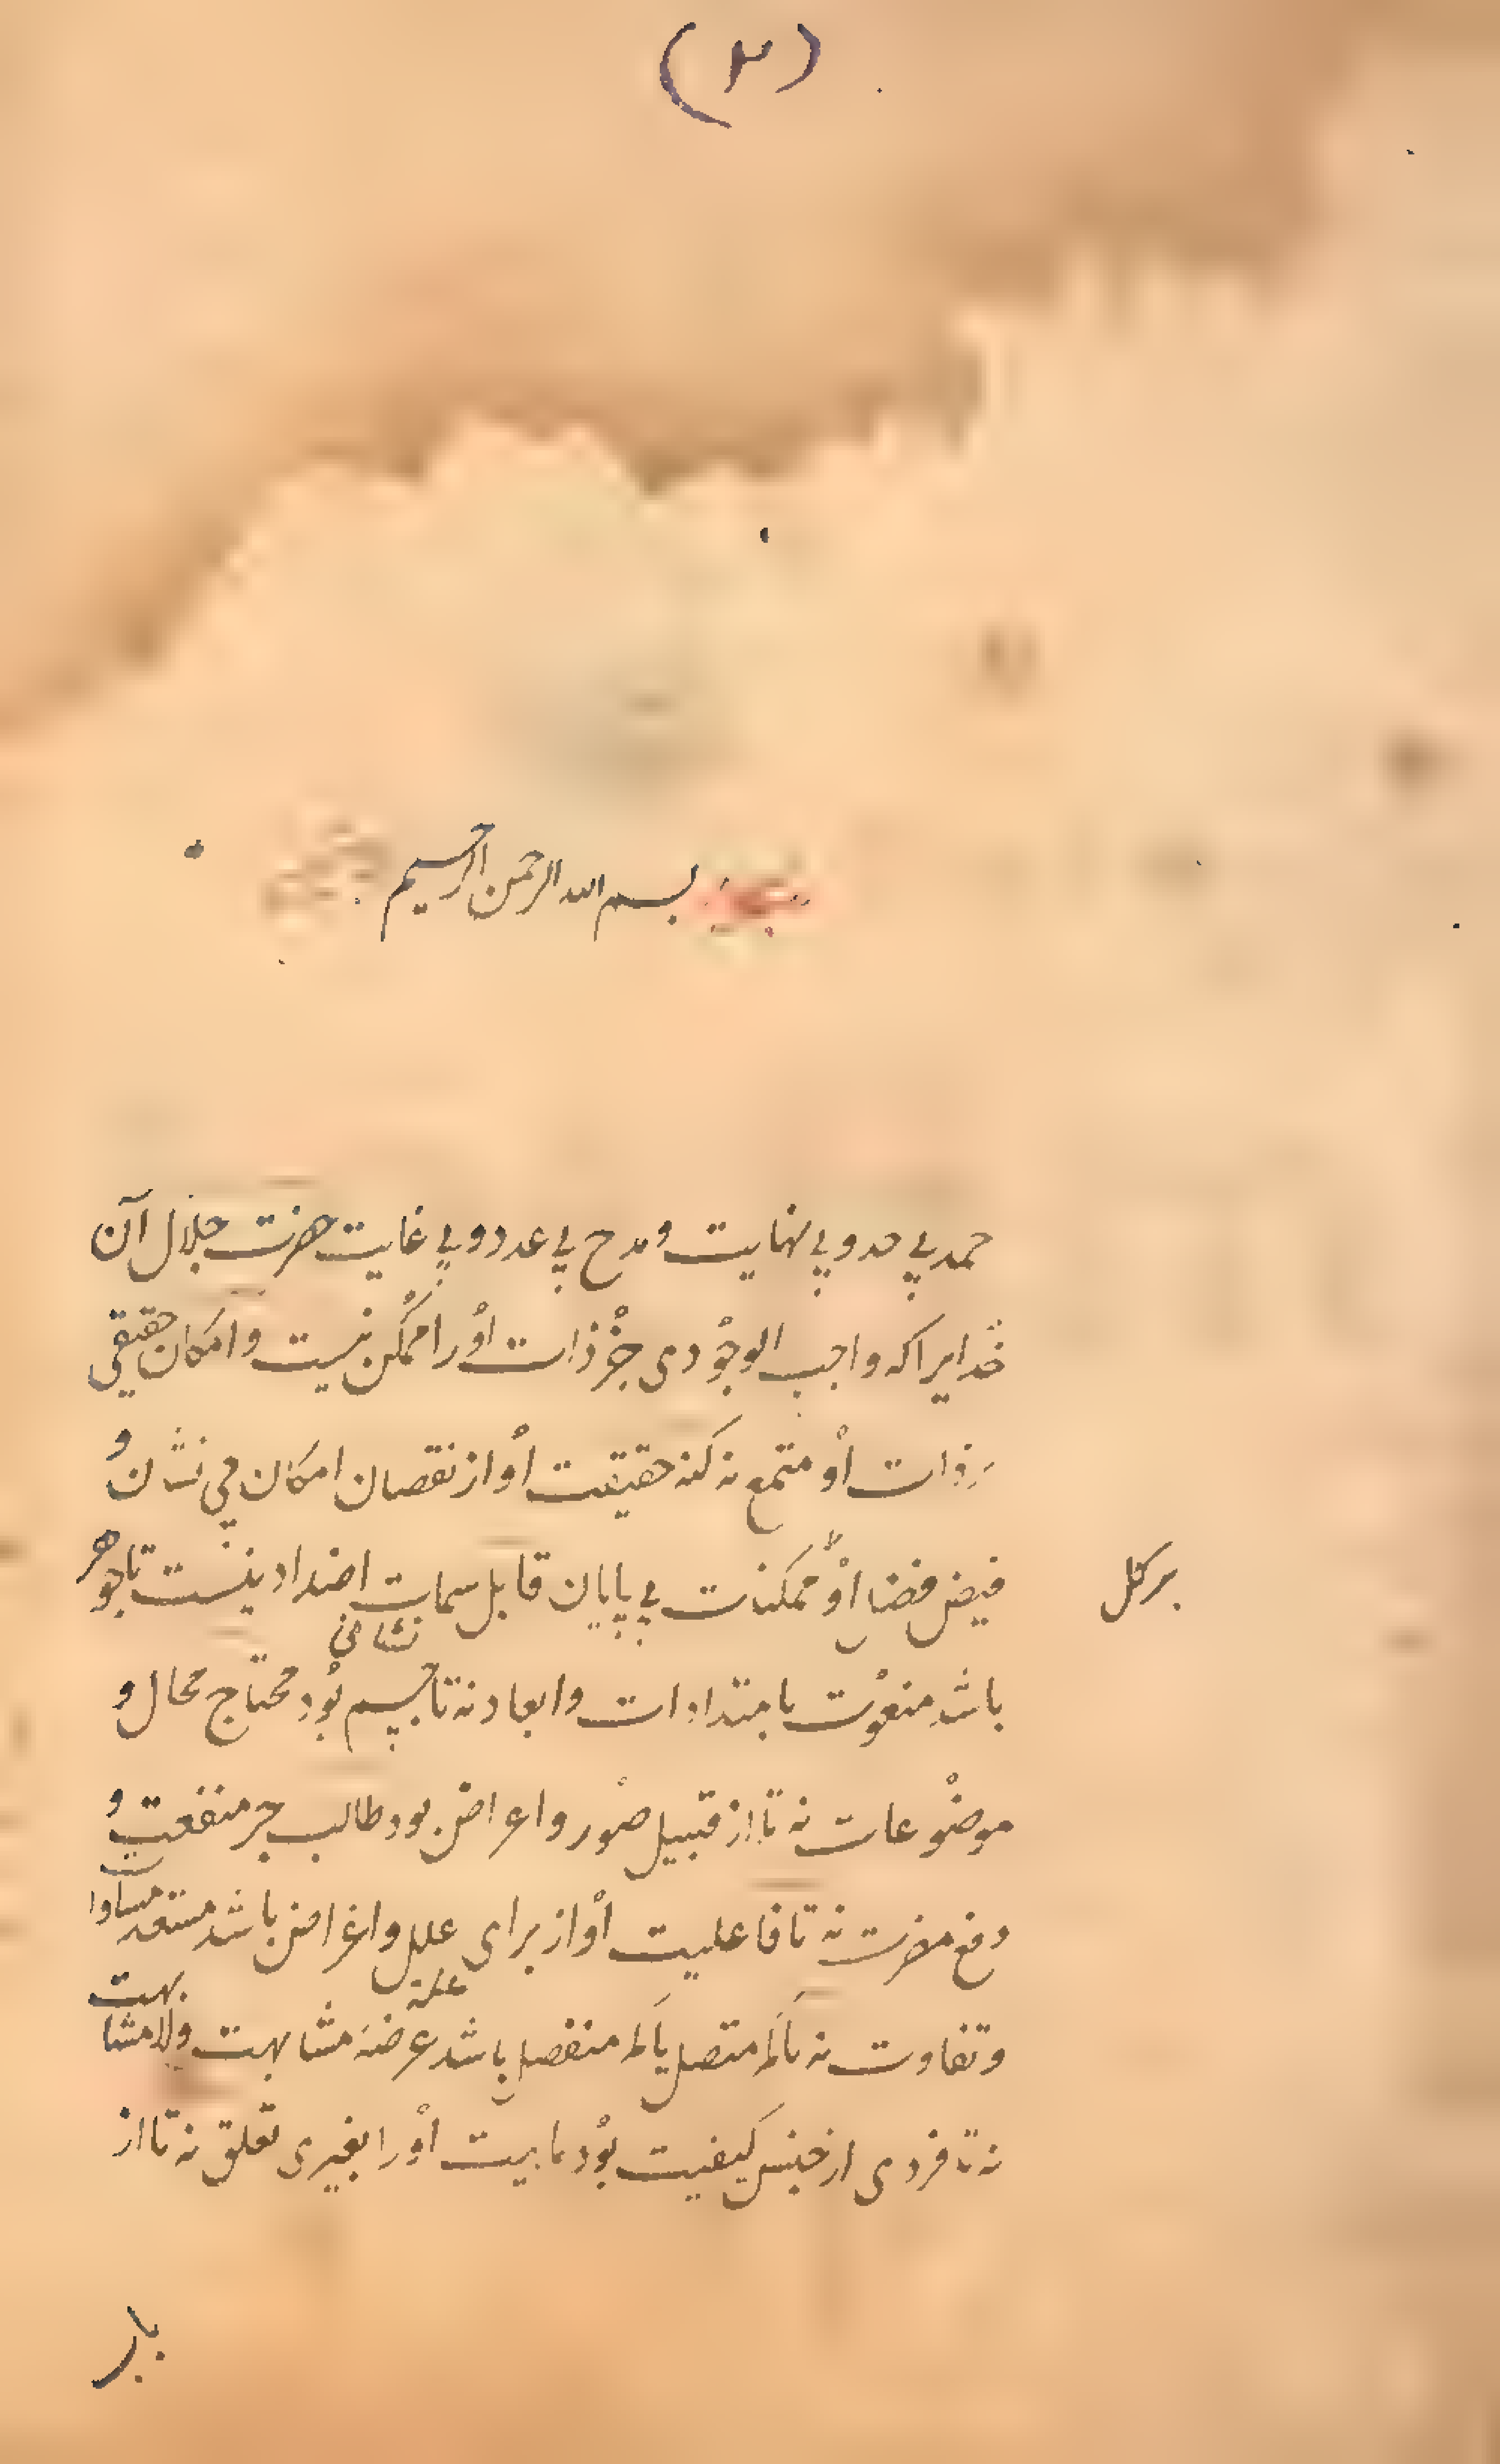 (۲)
بسم الله الرحمن الرحیم
حمد بی حد و بی نهایت و مدح بی عدد و بی غایت حضرت جلال آن
خدایرا که واجب الوجودی جز ذات اورا ممکن نیست و امکان حقیقی
بر ذات او ممتنع نه کنه حقیقت او از نقصان امکان می نشان و
فیض فضا او ممکنات بی پایان قابل سمات اضداد نیست تا جوهر
نشانی
بر کل
باشد منعوت بامتدادات و ابعاد نه تا جسم بود محتاج محال و
موضوعات نه تا از قبیل صور و اعراض بود طالب جر منفعت و
دفع مضرت نه تا فاعلیت او از برای علل و اغراض باشد مستعد مساوات
علة
و تفاوت نه تا کم متصل یا کم منفصل باشد عرضهٔ مشابهت ولا مشابهت
نه تا فردی از جنس کیفیت بود ماهیت اورا بغیری تعلق نه تا از
بار